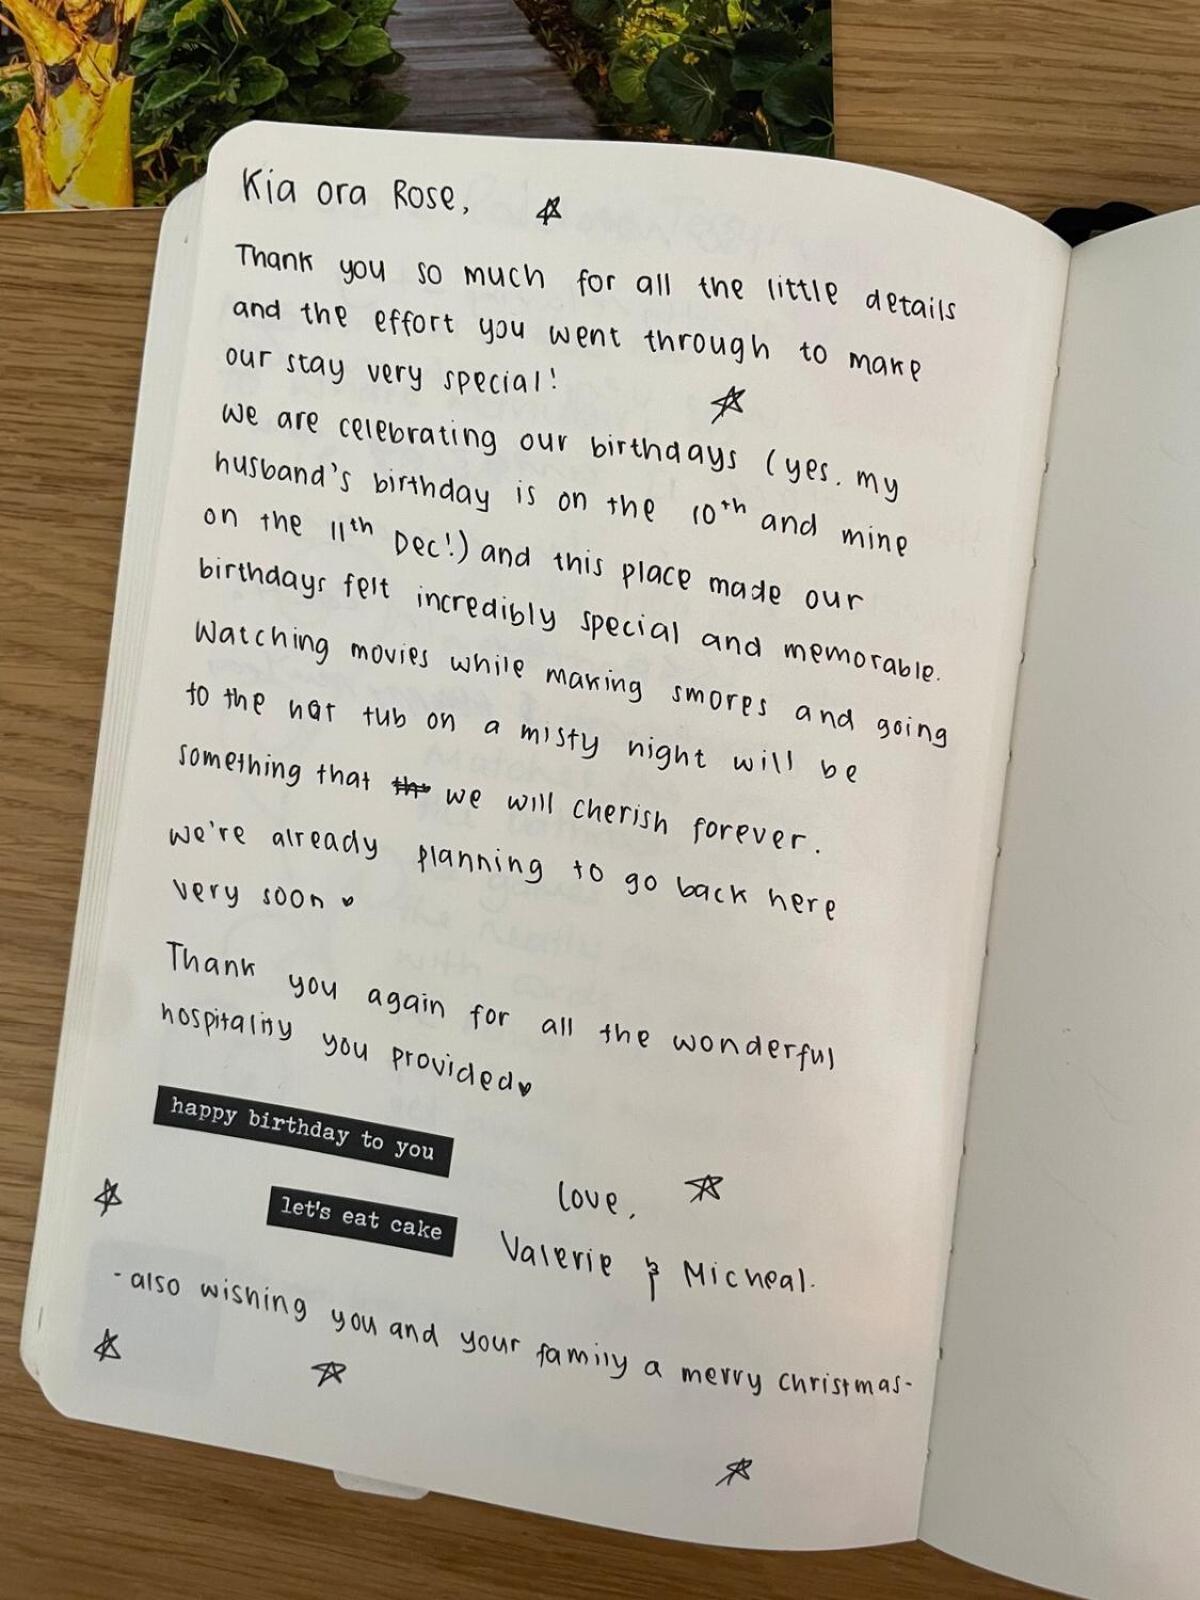 Kia ora Rose,
Thank you so much for all the little details
and the effort you went through to make
our stay very special!
We are celebrating our birthdays (yes. my
husband's birthday is on the 10th and mine
on the 11th Dec!) and this place made our
birthdays felt incredibly special and memorable.
Watching movies while making smores and going
to the hot tub on a misty night will be
something that we will cherish forever.
We're already planning to go back here
very soon ♥
Thank you again for all the wonderful
hospitality you provided♥
happy birthday to you
let's eat cake
love,
Valerie & Micheal.
- also wishing you and your family a merry christmas-